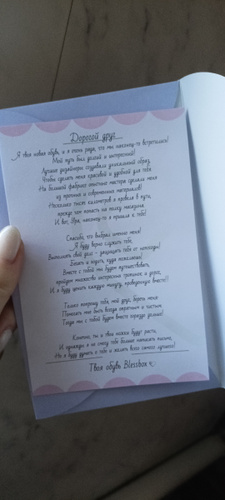 Дорогой друг!
Я твоя новая обувь, и я очень рада, что мы наконец-то встретились!
Мой путь был долгий и интересный!
Лучшие дизайнеры создавали уникальный образ,
Чтобы сделать меня красивой и удобной для тебя
На большой фабрике опытные мастера сделали меня
из прочных и современных материалов!
Несколько тысяч километров я провела в пути,
прежде чем попасть на полку магазина
И вот, Ура, наконец-то я пришла к тебе!
Спасибо, что выбрал именно меня!
Я буду верно служить тебе,
Выполнять свой долг - защищать тебя от непогоды!
Бегать и ходить, куда пожелаешь!
Вместе с тобой мы будем путешествовать,
пройдем множество интересных тропинок и дорог,
И я буду ценить каждую минуту, проведенную вместе!
Только попрошу тебя, мой друг, беречь меня
Помогать мне быть всегда опрятной и чистой
Тогда мы с тобой будем вместе гораздо дольше!
Конечно, ты и твои ножки будут расти,
И однажды я не смогу тебе больше
Но я буду
Твоя обувь Blessbox